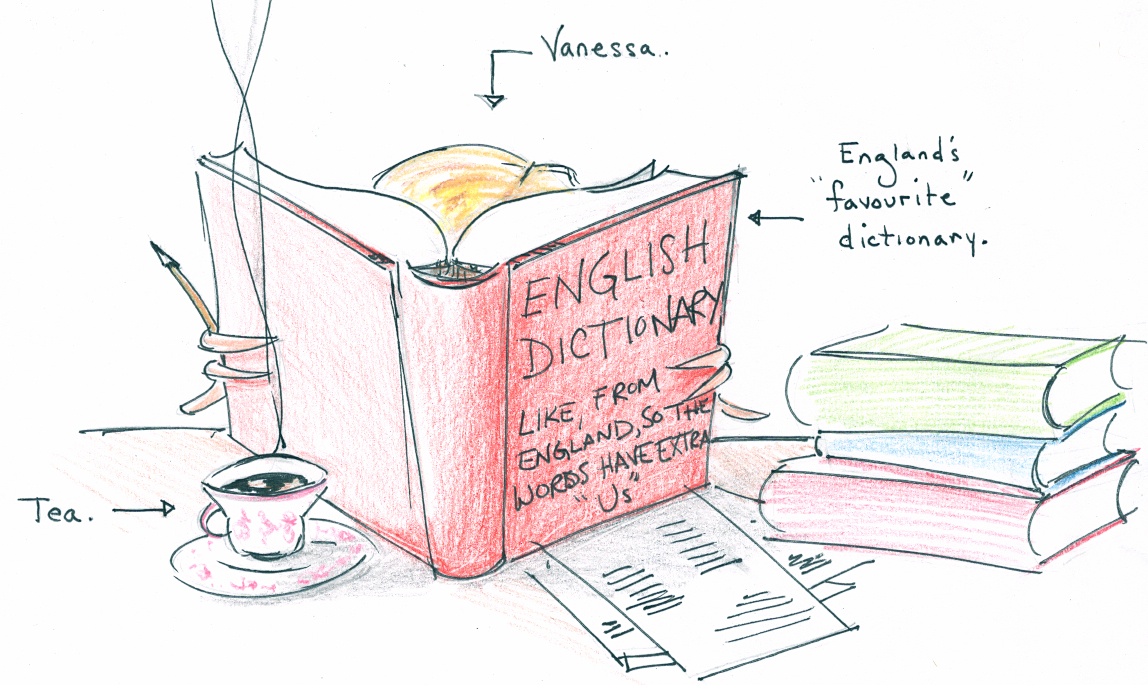 Vanessa..
England's
"favourite"
dictionary.
ENGLISH
DICTIONARY
LIKE, FROM
ENGLAND, SO THE
WORDS HAVE EXTRA
"Us"
Tea.